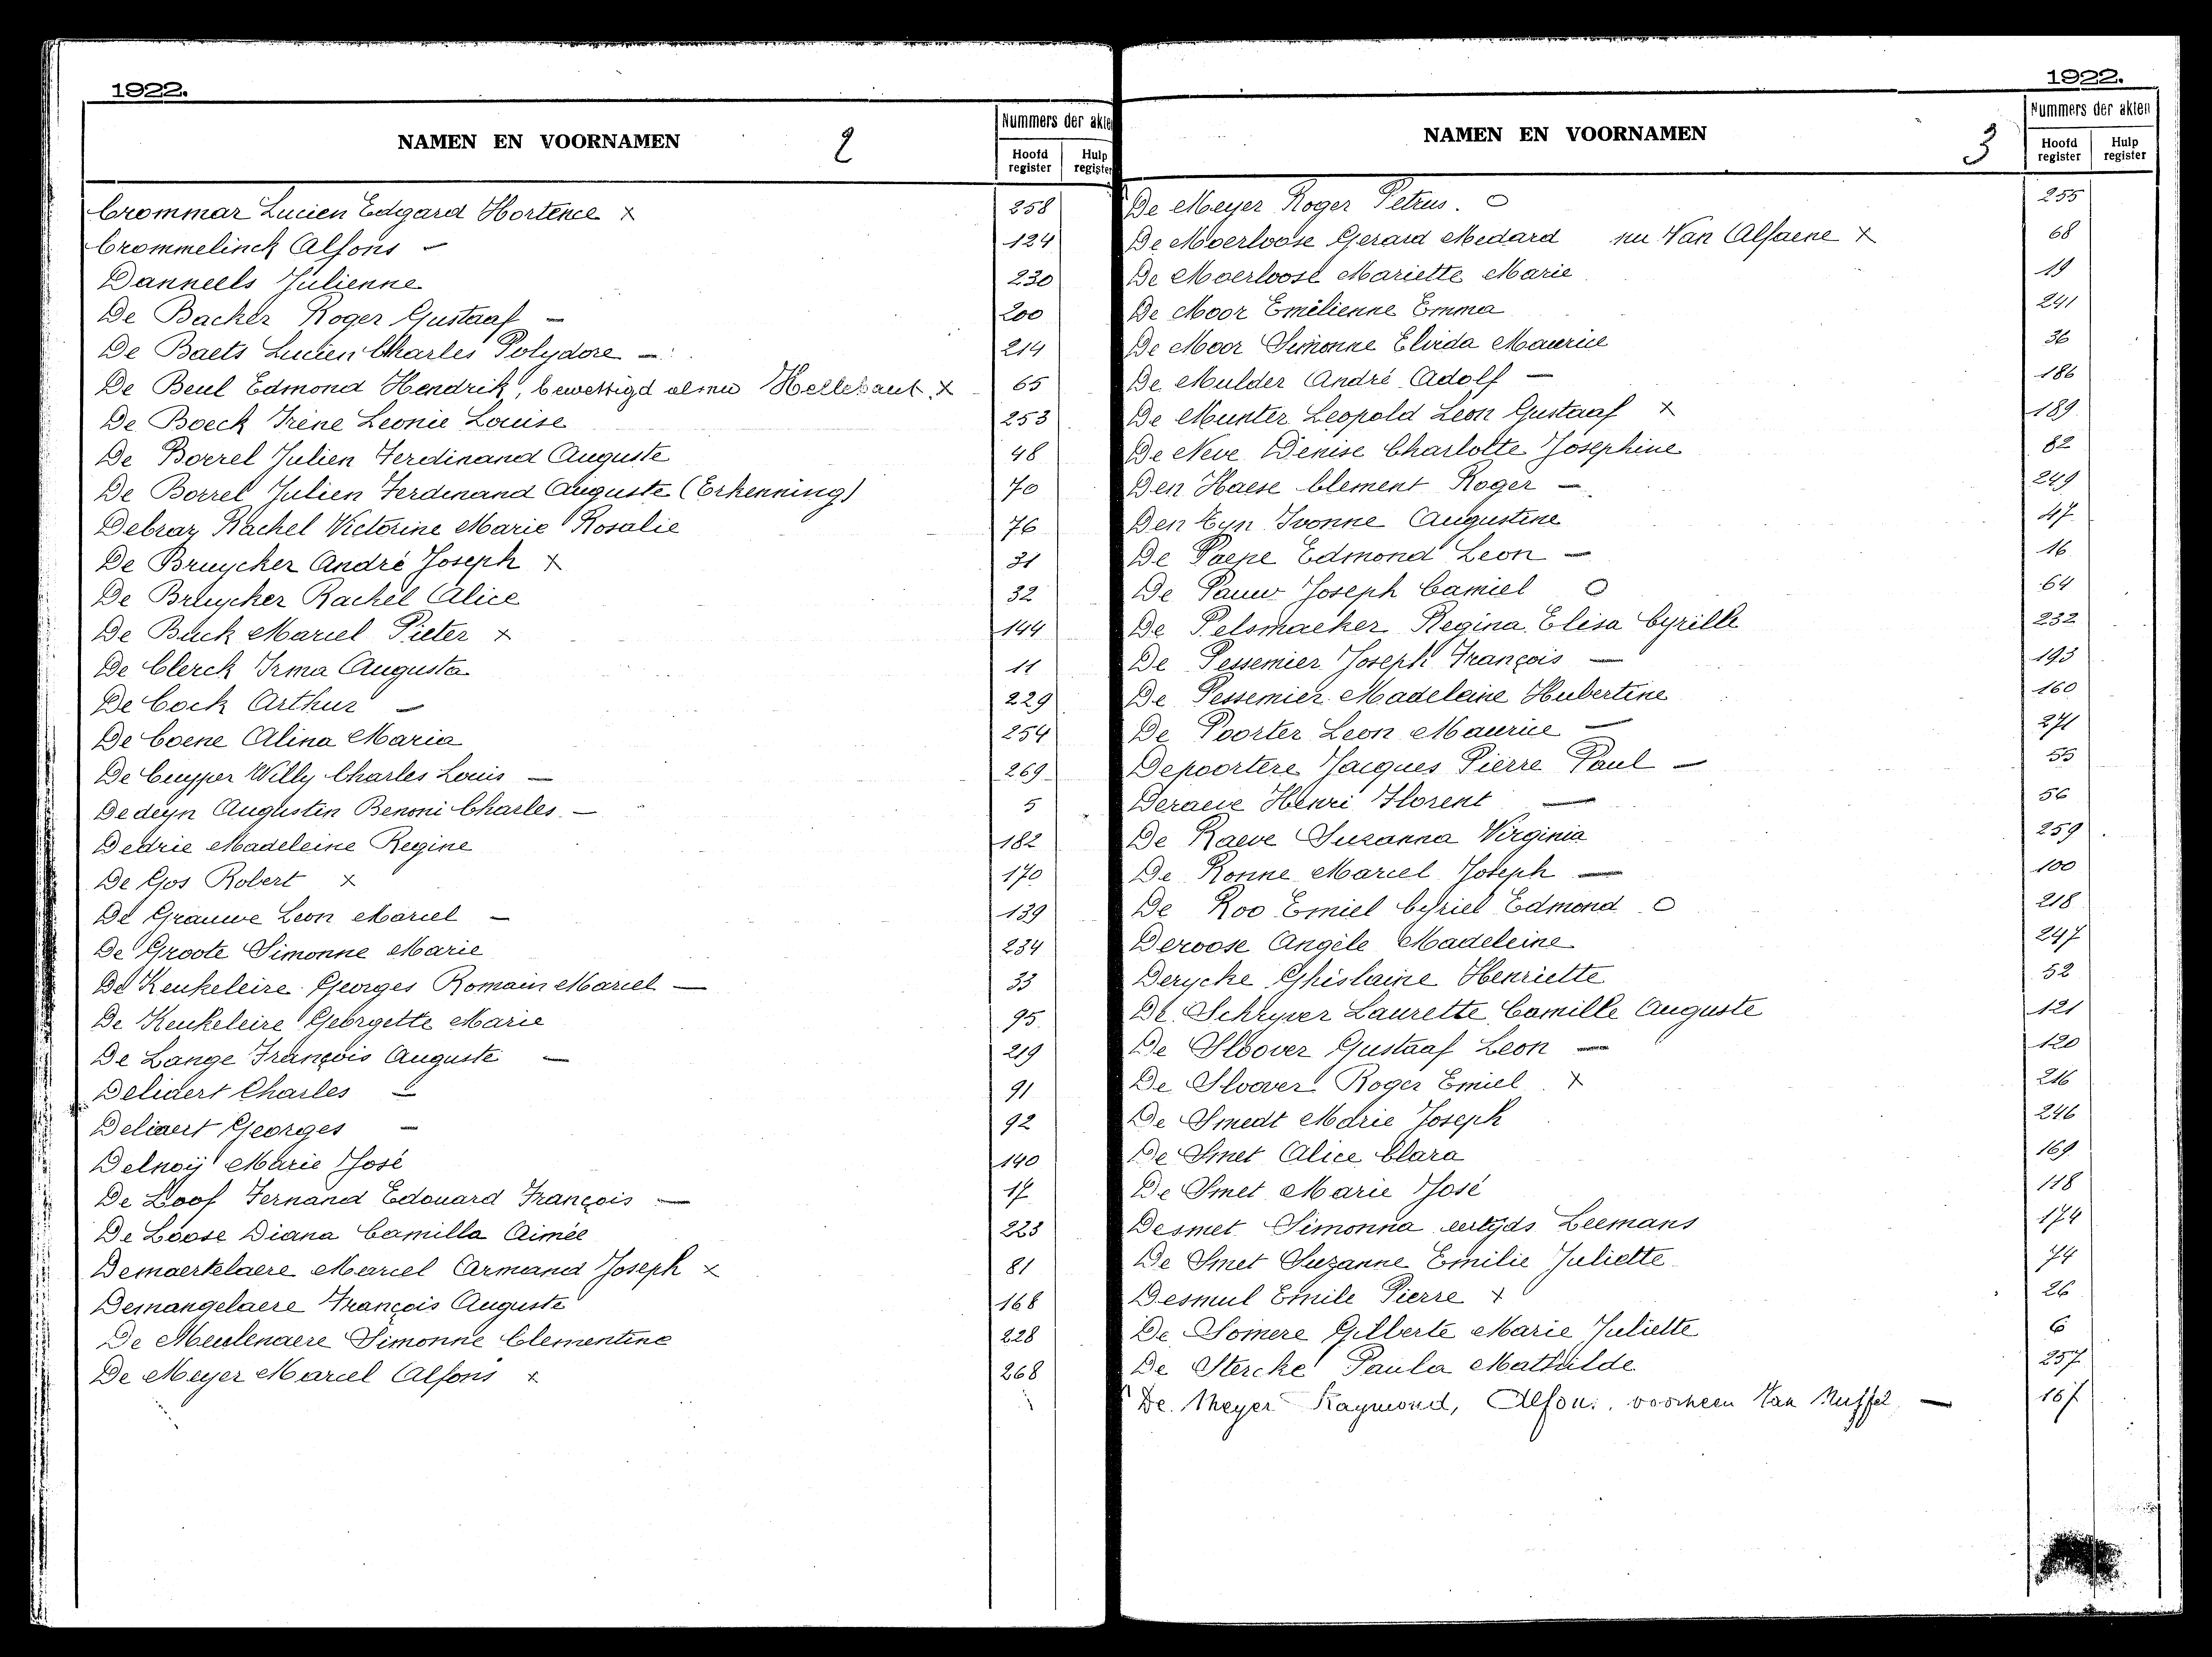 1922.
NAMEN EN VOORNAMEN 2 Nummers der akte
Hoofd register Hulp register
Crommar Lucien Edgard Hortence x 258
Crommelinck Alfons - 124
Danneels Julienne 230
De Backer Roger Gustaaf - 200
De Baets Lucien Charles Polydore - 214
De Beul Edmond Hendrik, bewettigd als nu Hellebaut x 65
De Boeck Irène Leonie Louise 253
De Borrel Julien Ferdinand Auguste 48
De Borrel Julien Ferdinand Auguste (Erkenning) 70
Debray Rachel Victorine Marie Rosalie 76
De Bruycker André Joseph x 31
De Bruycker Rachel Alice 32
De Buck Marcel Pieter x 144
De Clerck Irma Augusta 11
De Cock Arthur - 229
De Coene Alina Maria 254
De Cuyper Willy Charles Louis - 269
Dedeyn Augustin Benoni Charles - 5
Dedrie Madeleine Regine 182
De Gos Robert x 170
De Grauwe Leon Marcel - 139
De Groote Simonne Marie 234
De Keukeleire Georges Romain Marcel - 33
De Keukeleire Georgette Marie 95
De Lange François Auguste - 219
Deliaert Charles - 91
Deliaert Georges - 92
Delnoij Marie José 140
De Loof Fernand Edouard François - 17
De Loose Diana Camilla Aimée 223
Demaertelaere Marcel Armand Joseph x 81
Demangelaere François Auguste 168
De Meulenaere Simonne Clementine 228
De Meyer Marcel Alfons x 268
1922.
NAMEN EN VOORNAMEN 3 Nummers der akten
Hoofd register Hulp register
De Meyer Roger Petrus. O 255
De Moerloose Gerard Medard nu Van Alsaene x 68
De Moerloose Mariette Marie 19
De Moor Emilienne Emma 241
De Moor Simonne Elvida Maurice 36
De Mulder André Adolf - 186
De Munter Leopold Leon Gustaaf x 189
De Neve Denise Charlotte Josephine 82
Den Haese Clement Roger - 249
Den Tyn Ivonne Augustine 47
De Paepe Edmond Leon - 16
De Pauw Joseph Camiel O 64
De Pelsmaeker Regina Elisa Cyrille 232
De Pessemier Joseph François - 193
De Pessemier Madeleine Hubertine 160
De Poorter Leon Maurice - 271
Depoortere Jacques Pierre Paul - 55
Deraeve Henri Florent - 56
De Raeve Suzanna Virginia 259
De Ronne Marcel Joseph - 100
De Roo Emiel Cyriel Edmond O 218
Deroose Angèle Madeleine 247
Derycke Ghislaine Henriette 52
De Schryver Laurette Camille Auguste 121
De Sloover Gustaaf Leon - 120
De Sloover Roger Emiel x 216
De Smedt Marie Joseph 246
De Smet Alice Clara 169
De Smet Marie José 118
Desmet Simonna eertyds Leemans 174
De Smet Suzanne Emilie Juliette 74
Desmul Emile Pierre x 26
De Somere Gilberte Marie Juliette 6
De Stercke Paula Mathilde 257
De Meyer Raymond, Alfons, voorheen Van Nuffel - 167